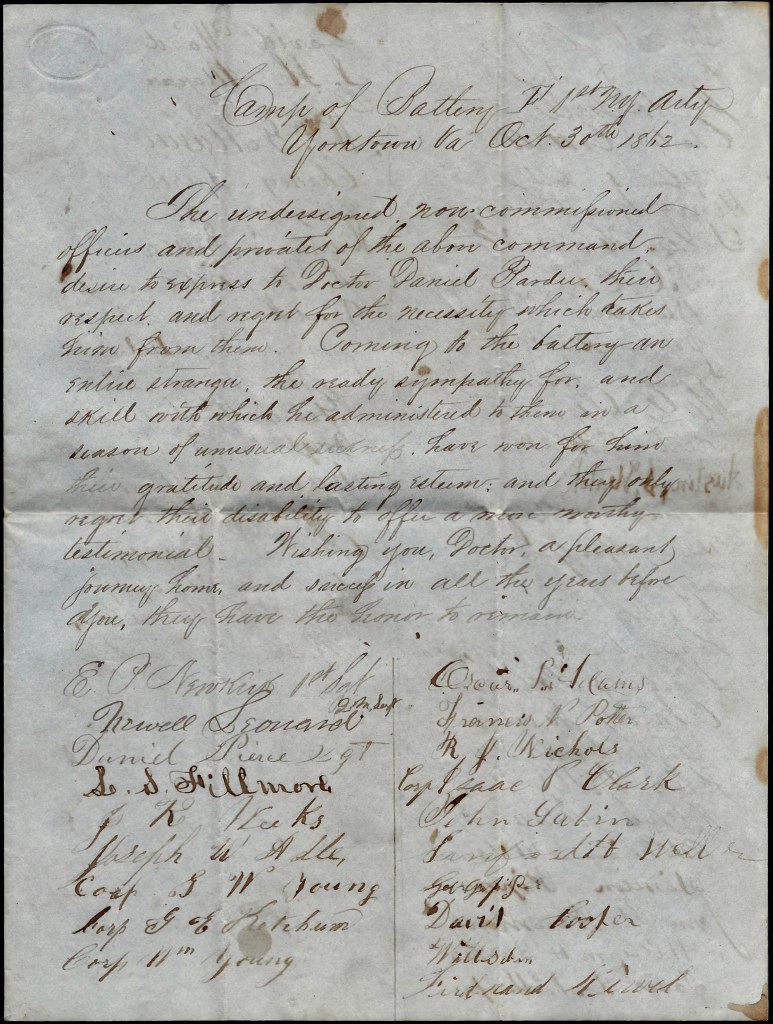 Camp of Battery F 1st N.Y. Arty
Yorktown Va Oct. 30th 1862.
The undersigned, non-commissioned
officers and privates of the above command,
desire to express to Doctor Daniel Pardee, their
respect, and regret for the necessity which takes
him from them. Coming to the battery an
entire stranger, the ready sympathy for, and
skill with which he administered to them in a
season of unusual sickness, have won for him
their gratitude and lasting esteem; and they only
regret their disability to offer a more worthy
testimonial. Wishing you, Doctor, a pleasant
journey home, and success in all the years before
you, they have the honor to remain.
E. P. Newkirk 1st Sgt
Newell Leonard Q.M. Sergt
Daniel Pierce Sgt
L. S. Fillmore
J K Weeks
Joseph W
Corp G W Young
Corp G E Ketchum
Corp Wm Young
Oscar Adams
Francis N Potter
R. J. Nichols
Corp Isaac P Clark
John Gabin
David Cooper
Ferdnand